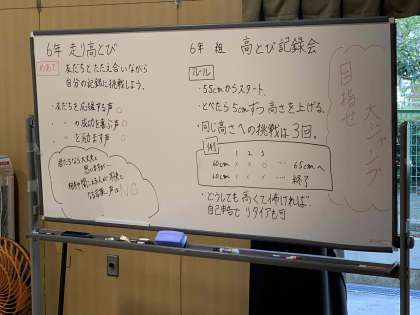 6年 走り高とび
めあて 友だちとたたえ合いながら
自分の記録に挑戦しよう。
・友だちを応援する声○
・〃の成功を喜ぶ声○
・〃を励ます声○
NG
6年 組 高とび記録会
ルール
・55cmからスタート。
・とべたら5cmずつ高さを上げる。
・同じ高さへの挑戦は3回。
例
1 2 3
60cm × × ○ … 65cmへ
60cm × × × … 終了
・どうしても高くて怖ければ
自己申告でリタイアも可
目指せ
大ジャンプ